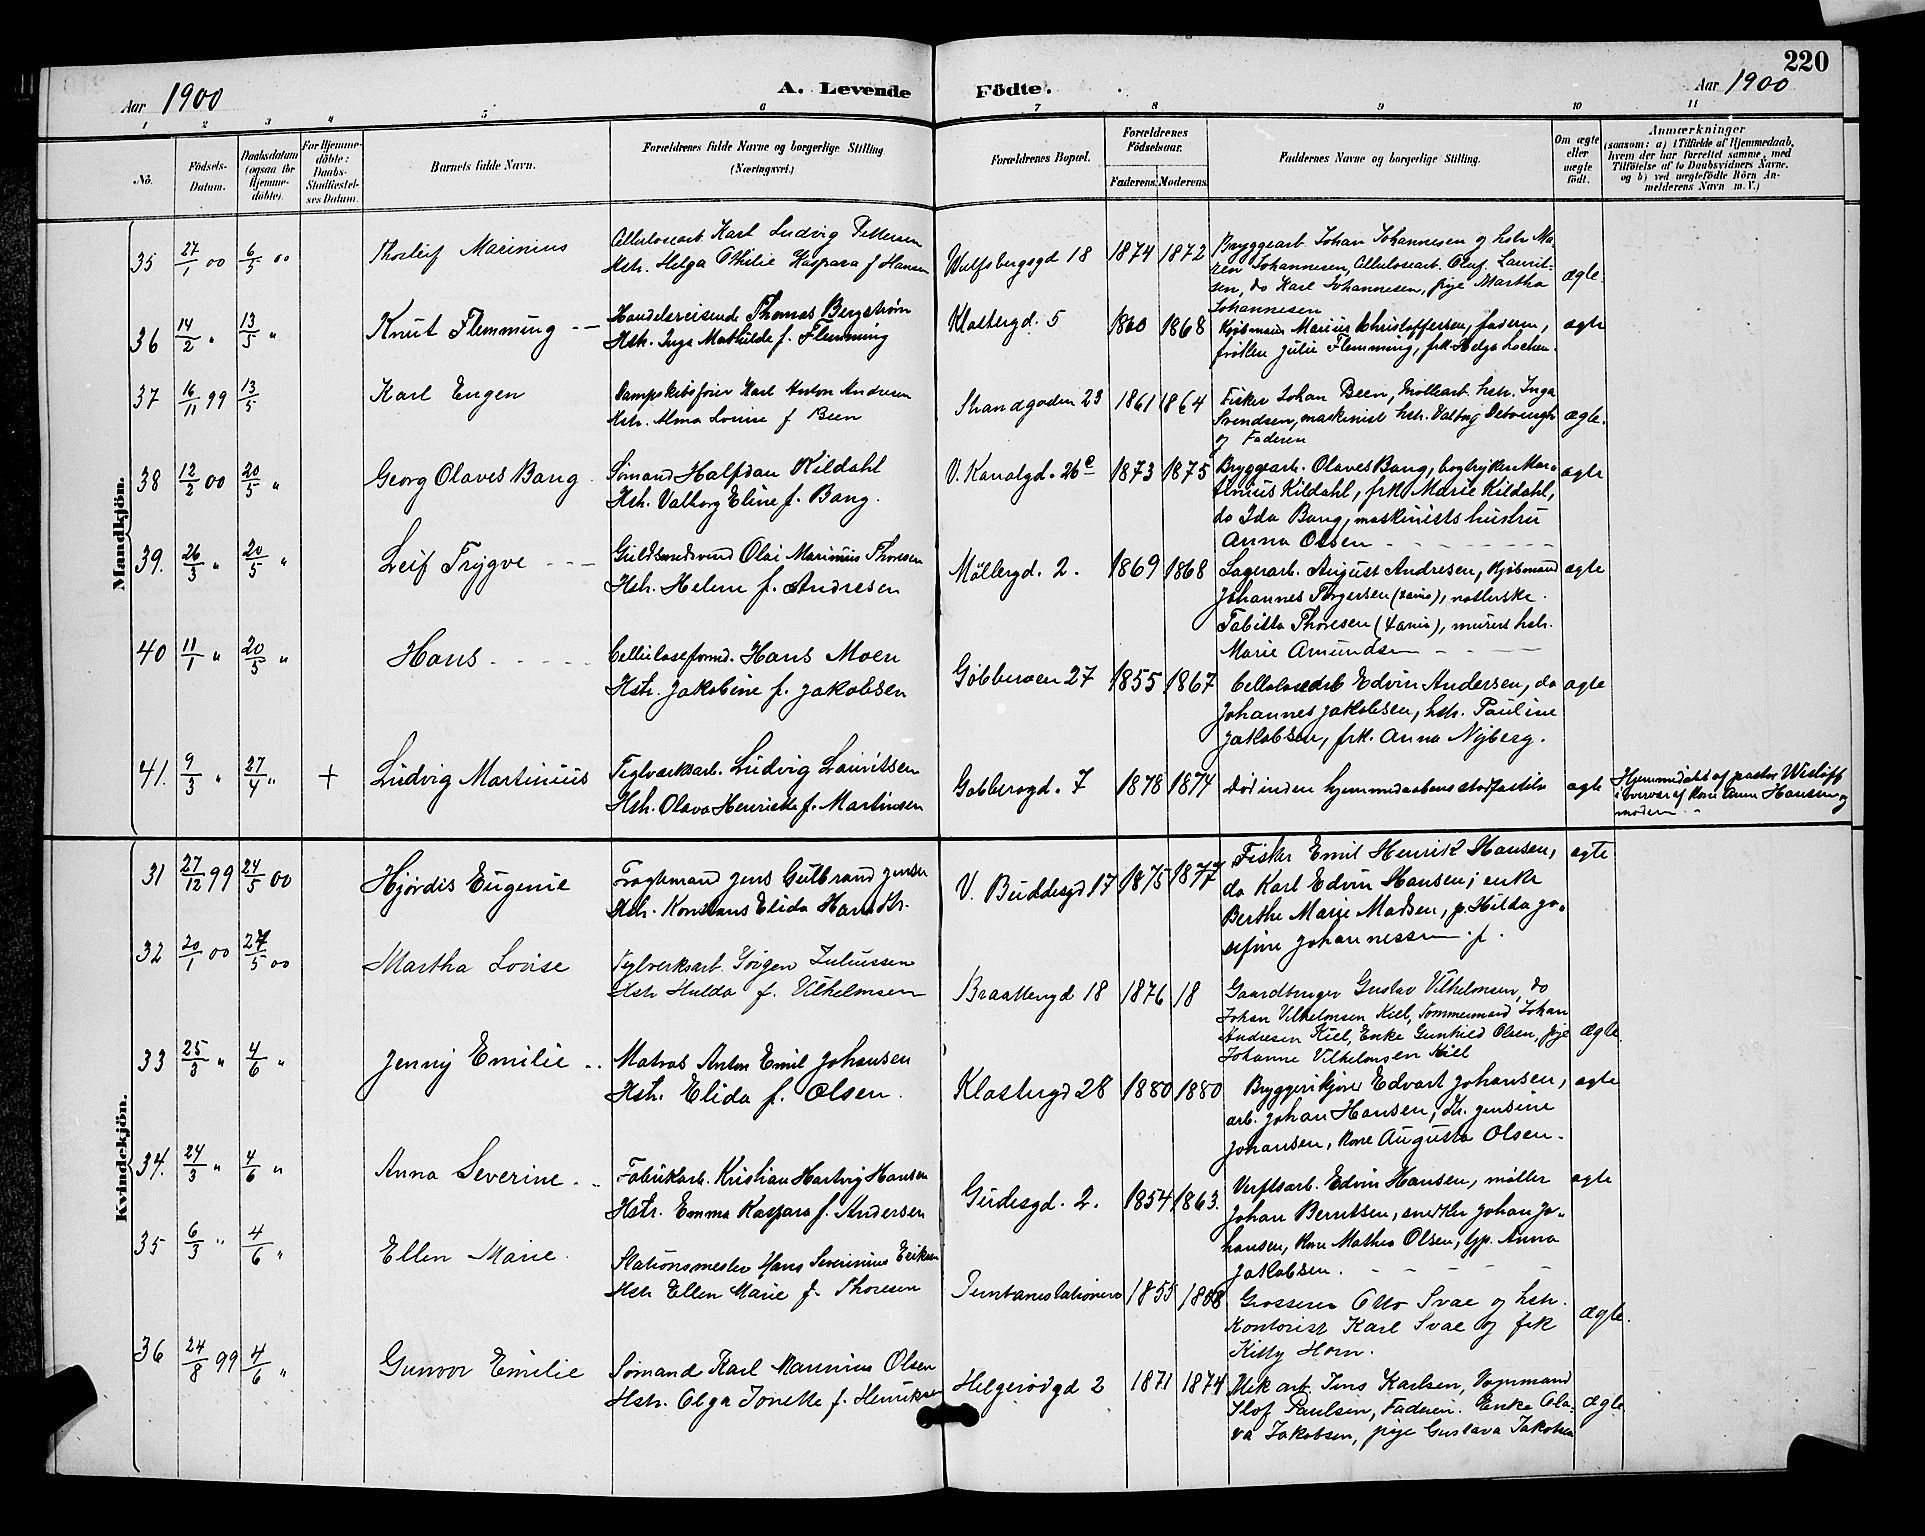 220
Aar 1900
A. Levende Födte.
Aar 1900
1 2 3 4 5 6 7 8 9 10 11
No.
Födsels-
Datum.
Daabsdatum
(ogsaa for
Hjemme-
döbte).
For Hjemme-
döbte:
Daabs-
Stadfæstel-
ses Datum.
Barnets fulde Navn.
Forældrenes fulde Navne og borgerlige Stilling
(Næringsvei.)
Forældrenes Bopæl.
Forældrenes
Födselsaar.
Faderens. Moderens.
Faddernes Navne og borgerlige Stilling.
Om ægte
eller
uægte
födt.
Anmærkninger
(saasom: a) i Tilfælde af Hjemmedaab,
hvem der har forrettet samme, med
Tilföielse af to Daabsvidners Navne.
og b) ved uægtefödte Börn An-
melderens Navn m. V.)
Mandkjön.
35 27/1 00 6/5 00 Thorleif Marinius
Celluloseart Karl Ludvig Pettersen
Hstr. Helga Othilie Kaspara f Hansen
Wulfsbergsgd 18 1874 1872
Bryggearb. Johan Johannesen og hstr Ma-
ren Johannesen, Cellulosearb. Oluf Laurit-
sen, do Karl Johannesen, pige Martha
Johannesen
ægte.
36 14/2 " 13/5 " Knut Flemming
Handelsreisende Thomas Bergstrøm
Hstr. Inga Mathilde f. Flemming
Klostergd. 5 1868
Kjøbmand Marius Christoffersen, faderen,
frøken Julie Flemming, frk. Helga Lochen.
ægte
37 16/11 99 13/5 Karl Eugen
Dampskibsfører Karl Anton Andresen
Hstr. Alma Louise f Been
Strandgaden 23 1861 1864
Fisker Johan Been, Møllearb. hstr. Inga
Svendsen, maskinist hstr. Valborg
og Faderen
ægte.
38 12/2 00 20/5 " Georg Olaves Bang
Sömand Halfdan Kildahl
Hstr. Valborg Eline f. Bang.
V. Kanalgd. 26 e 1873 1875
Bryggearb. Olaves Bang, bogtrykker Mar-
tinius Kildahl, frk. Marie Kildahl,
do Ida Bang, maskinists hustru
Anna Olsen
ægte
39. 26/3 " 20/5 " Leif Trygve
Guldsmedsvend Olai Marinius Thoresen
Hstr. Helene f. Andresen
Møllergd. 2. 1869 1868
Lagerarb. August Andresen, kjøbmand
Johannes Torgersen (Xania),
Tabitta Thoresen (Xania), murers hstr.
Marie Amundsen
ægte
40 11/1 " 20/5 " Hans
Celluloseformd. Hans Moen
Hstr. Jakobine f. Jakobsen
Gobberoen 27 1855 1867
Cellulosearb Edvin Andersen, do
Johannes Jakobsen, hstr. Pauline
Jakobsen, frk. Anna Nyberg.
ægte
41. 9/3 " 27/4 " + Ludvig Martinius
Teglværksarb. Ludvig Lauritssen
Hstr. Olava Henriette f. Martinsen
Gobberogd. 7 1878 1874
Død inden hjemmedaabens stadfæstelse
ægte
Hjemmedøbt af pastor Wisløff
i overvær af Kone Anne Hansen og
moderen
Kvindekjön.
31 27/12 99 24/5 00 Hjördis Eugenie
Fragtmand Jens Gulbrand Jensen
Hstr. Konstanse Elida
V. Buddesgd 17 1875 1877
Fisker Emil Henrik Hansen,
do Karl Edvin Hansen; enke
Berthe Marie Madsen, p. Hilda Jo-
sefine Johannessen
ægte
32 20/1 00 27/5 00 Martha Lovise
Teglverksarb. Jörgen Juliussen
Hstr Hulda f. Vilhelmsen
Braattengd 18 1876 18
Gaardbruger Gustav Vilhelmsen, do
Johan Vilhelmsen Kiil, Tømmermand Johan
Andresen Kiil, Enke Gunhild Olsen, pige
Johanne Vilhelmsen Kiil
ægte.
33 25/3 " 4/6 " Jenny Emilie
Matros Anton Emil Johansen
Hstr. Elida f. Olsen.
Klostergd 28 1880 1880
Bryggerikjører Edvart Johansen,
arb. Johan Hansen, Jensine
Johansen, Kone Augusta Olsen.
ægte
34. 24/3 " 4/6 " Anna Severine
Fabrikarb. Kristian Hartvig Hansen
Hstr. Emma Kaspara f. Andersen
Gudesgd. 2. 1854 1863.
Verftsarb. Edvin Hansen, møller
Johan Berntsen, snedker Johan Jo-
hansen, Kone Mathea Olsen, Anna
Jakobsen.
ægte
35 6/3 " 4/6 " Ellen Marie
Stationsmester Hans Severinius Eriksen
Hstr Ellen Marie f. Thoresen
1855
Grosserer Otto Svae og hstr.
Kontorist Karl Svae og frk
Kitty Horn.
ægte.
36 24/8 99 4/6 " Gunvor Emilie
Sömand Karl Marinius Olsen
Hstr. Olga Jonette f. Henriksen
Helgerödgd 2 1871 1874
Mek arb. Jens Karlsen, Vognmand
Olof Paulsen, Faderen. Enke Ola-
va Jakobsen, pige Gustava Jakobsen
ægte